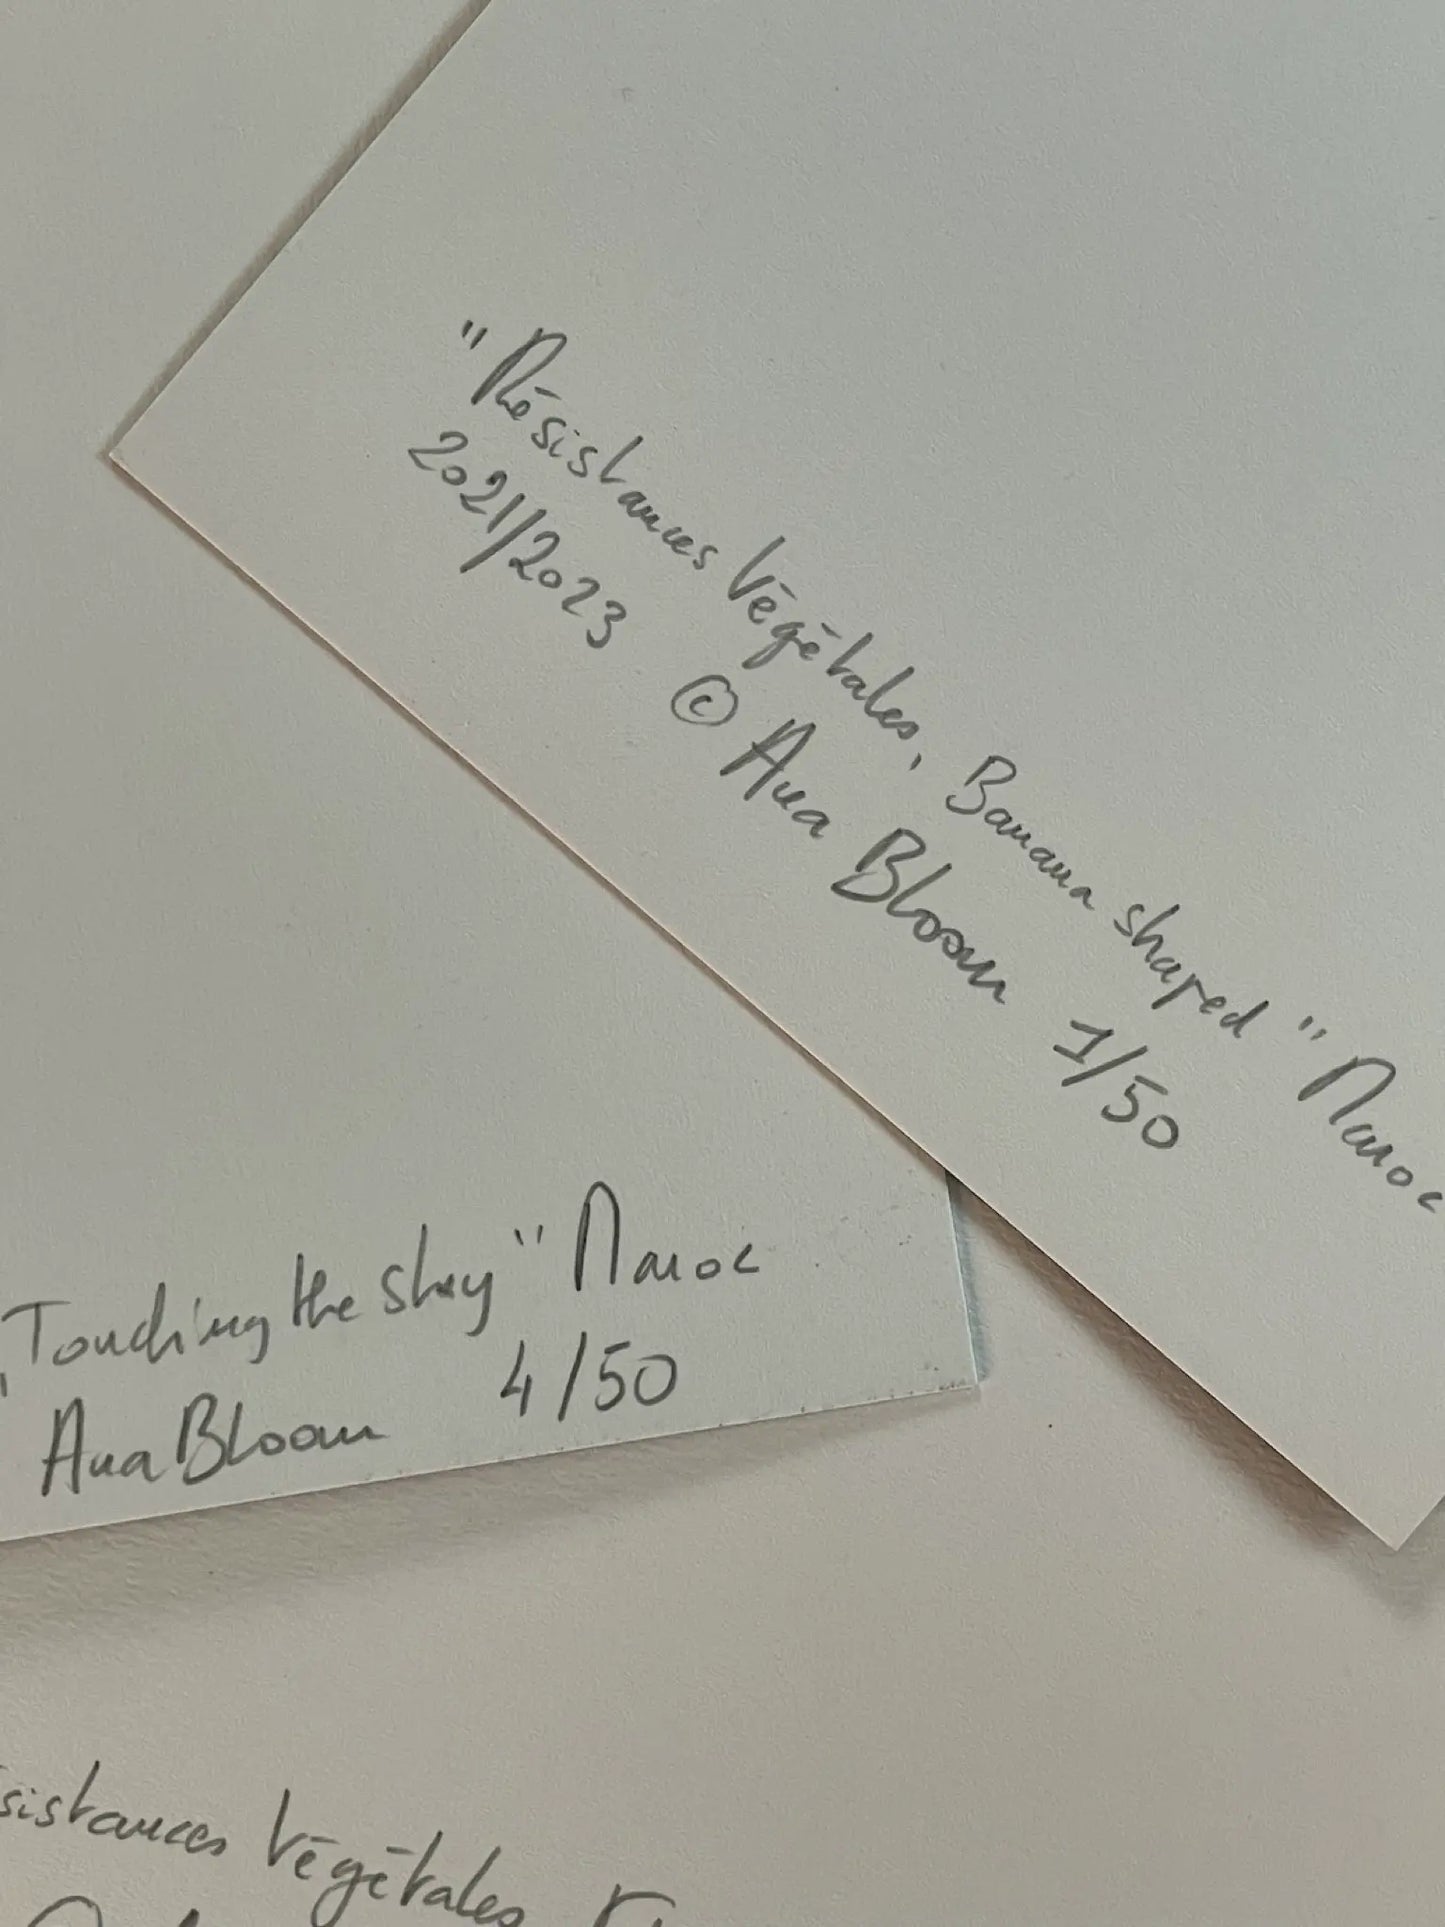 "Résistances Végétales, Banana shaped" Maroc
2021/2023 © Ana Bloom 1/50
, Touching the sky" Maroc
Ana Bloom 4/50
sistances Végétales